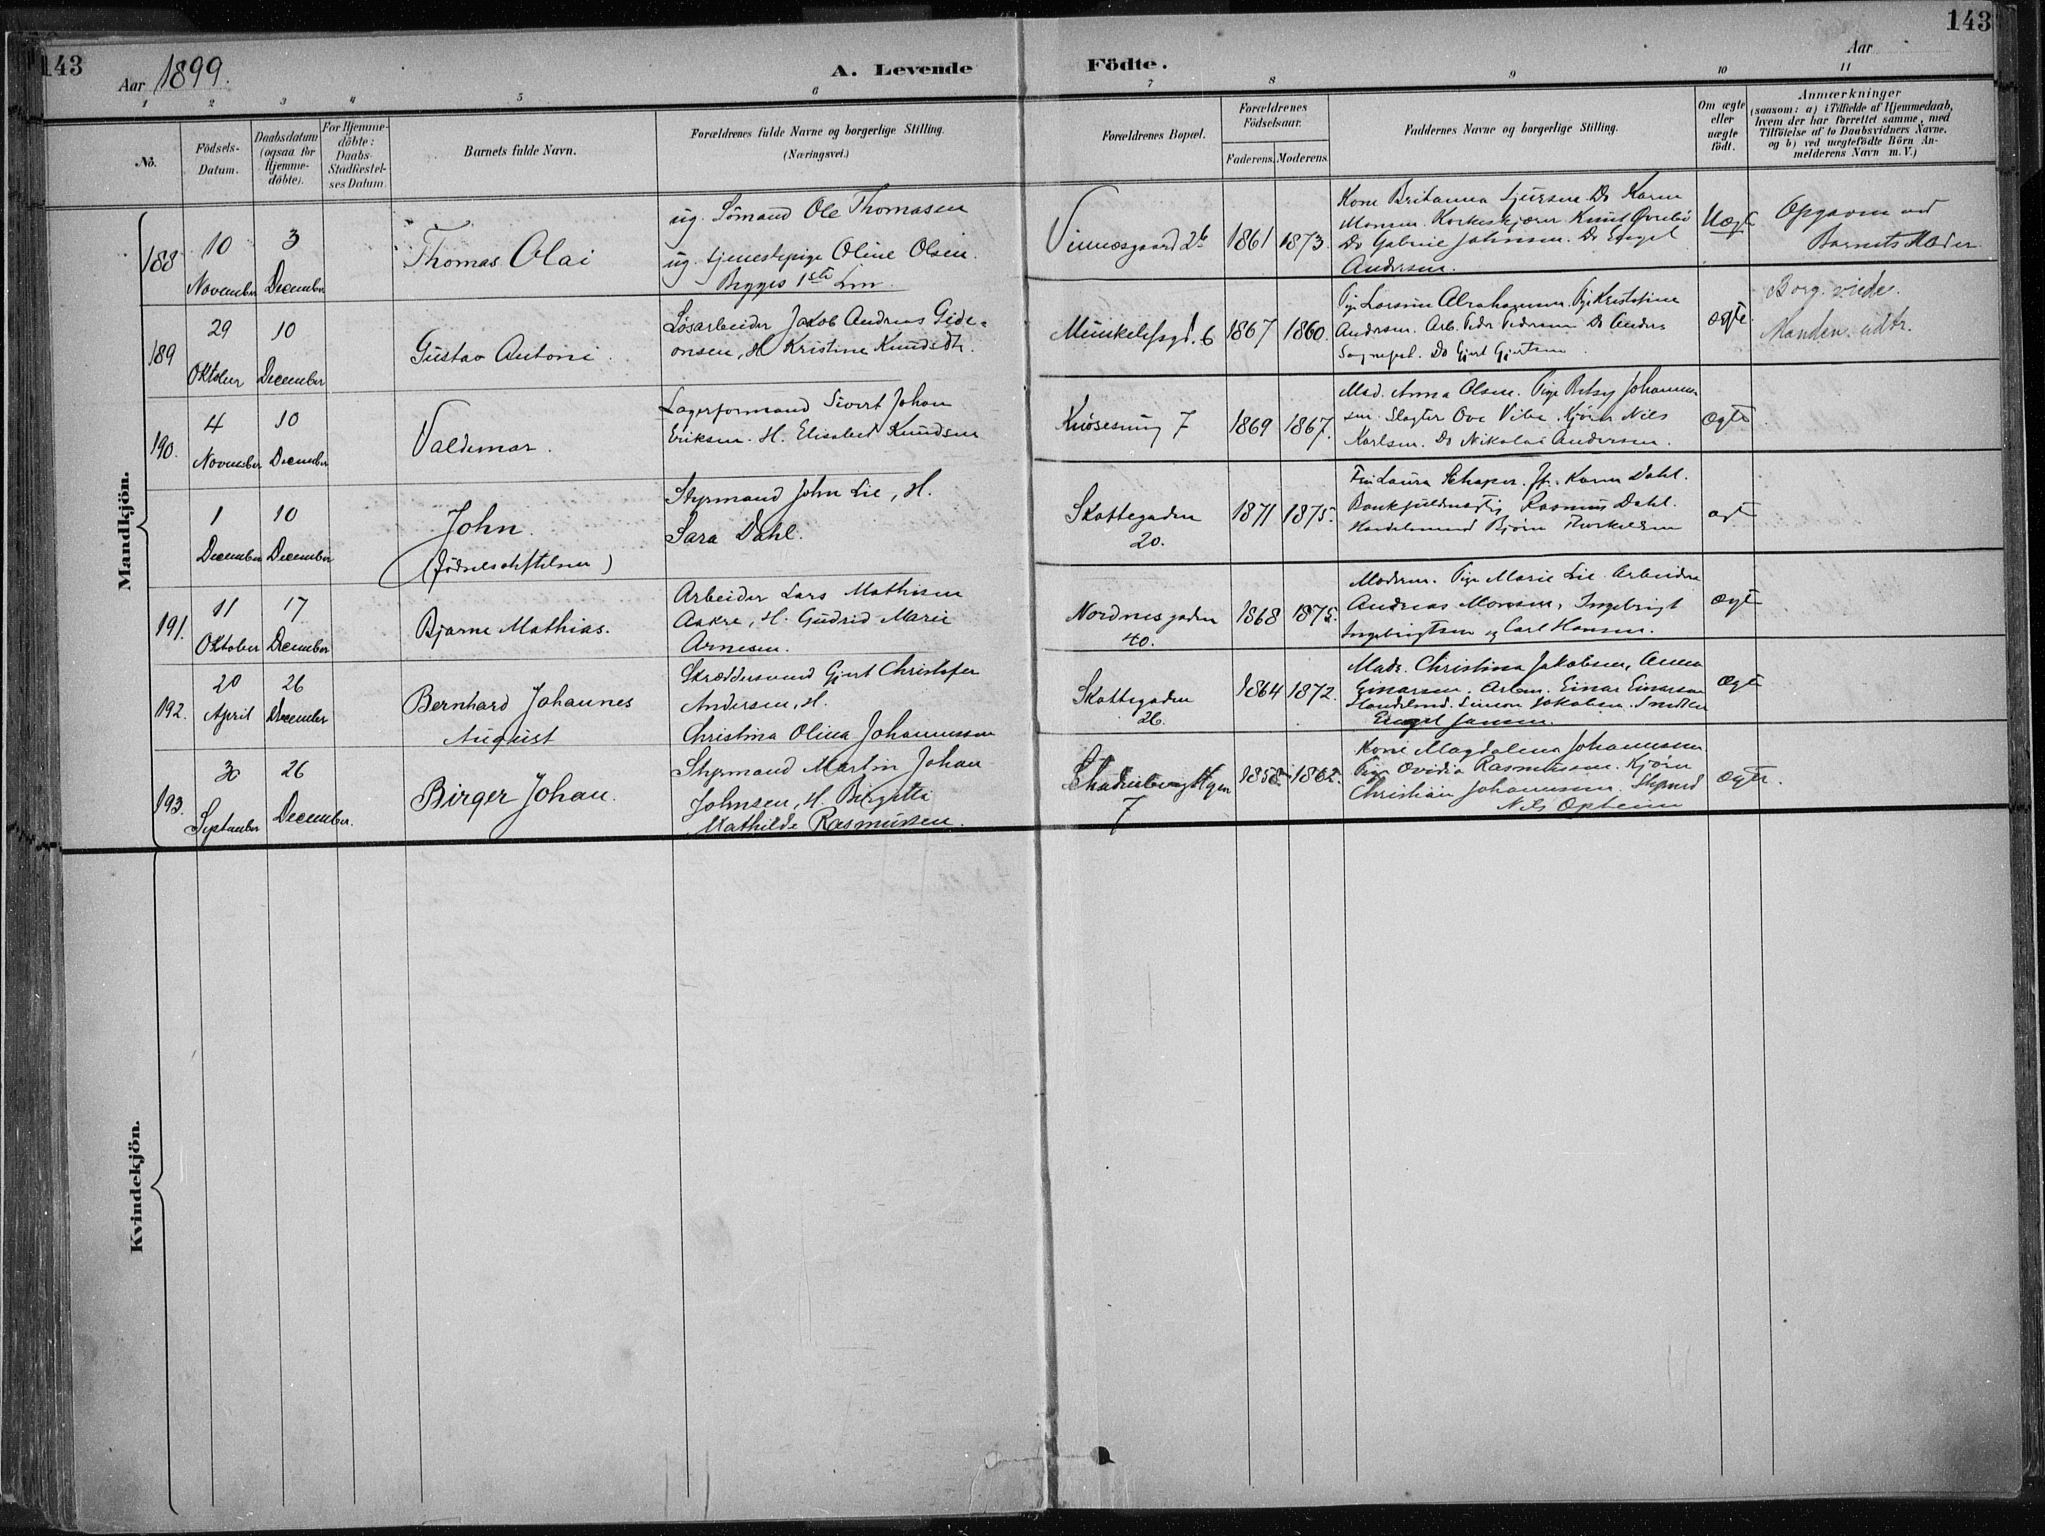 143
Aar 1899.
A. Levende Födte.
Aar
143
1 2 3 4 5 6 7 8 9 10 11
Nö.
Födsels-Datum.
Daabsdatum (ogsaa for Hjemmedöbte).
For Hjemmedöbte: Daabs-Stadfæstelses Datum.
Barnets fulde Navn.
Forældrenes fulde Navne og borgerlige Stilling.
(Næringsvei.)
Forældrenes Bopæl.
Forældrenes Födselsaar.
Faderens. Moderens.
Faddernes Navne og borgerlige Stilling.
Om ægte eller uægte födt.
Anmærkninger
(saasom: a) i Tilfælde af Hjemmedaab, hvem der har forrettet samme, med Tilföielse af to Daabsvidners Navne, og b) ved uægtefödte Börn Anmelderens Navn m. V.)
Mandkjön.
188
10 November
3 December
Thomas Olai
ug. Sömand Ole Thomasen
ug. tjenestepige Oline Olsen.
Begges 1ste
2b
1861 1873.
Kone Britanna Sjursen. Do Karen
Monsen. Knut
Do Gabriel Johnsen. Do Engel
Andersen.
Uægte
Opgaven ved
Barnets Moder
189
29 Oktober
10 December
Gustav Antoni.
Løsarbeider Jakob Andreas Gide-
onsen, H. Kristine Knudsdtr.
Munkelifsgd. 6
1867 1860.
Pige Abrahamsen. Pige Kristofine
Andersen. Arb. Peder Pedersen Do Anders
Do Gjert Gjertsen
ægte
Borg. viede.
Manden udtr.
190.
4 November
10 December
Valdemar.
Lagerformand Sivert Johan
Eriksen. H. Elisabet Knudsen
Knøsesmug 7
1869 1867.
Mad. Anna Olsen. Pige Betsy Johannes
sen. Slagter Ove Vibe. Kjörer Nils
Karlsen. Do Nikolai Andersen.
ægte
1 December
10 December
John.
(födselsattesten)
Styrmand John Lie, H.
Sara Dahl.
Skottegaden
20.
1871 1875.
Fru Laura Schaper. Fr. Karen Dahl.
Bankfuldmægtig Rasmus Dahl.
Handelsmand Björn Thorkildsen
191.
11 Oktober
17 December
Bjarne Mathias.
Arbeider Lars Mathisen
Aakre, H. Gudrid Marie
Arnesen.
Nordnesgaden
40.
1868 1875.
Moderen. Pige Marie Lie. Arbeider
Andreas Monsen, Ingebrigt
Ingebrigtsen og Carl Hansen.
ægte
192.
20 April
26 December
Bernhard Johannes
August
Skræddersvend Gjert Christofer
Andersen, H.
Christina Olina Johannessen
Skottegaden
26.
1864 1872.
Mads. Christina Jakobsen, Anna
Einarsen. Arbm. Einar Einarsen
Simon Jakobsen. Snedker
Engel Jansen.
ægte
193.
30 September
26 December.
Birger Johan.
Styrmand Martin Johan
Johnsen, H. Birgitte
Mathilde Rasmussen.
7
1858 1862.
Kone Magdalina Johannessen.
Pige Ovidia Rasmussen. Kjörer
Christian Johannesen. Styrmd
Nils Opheim
ægte.
Kvindekjön.